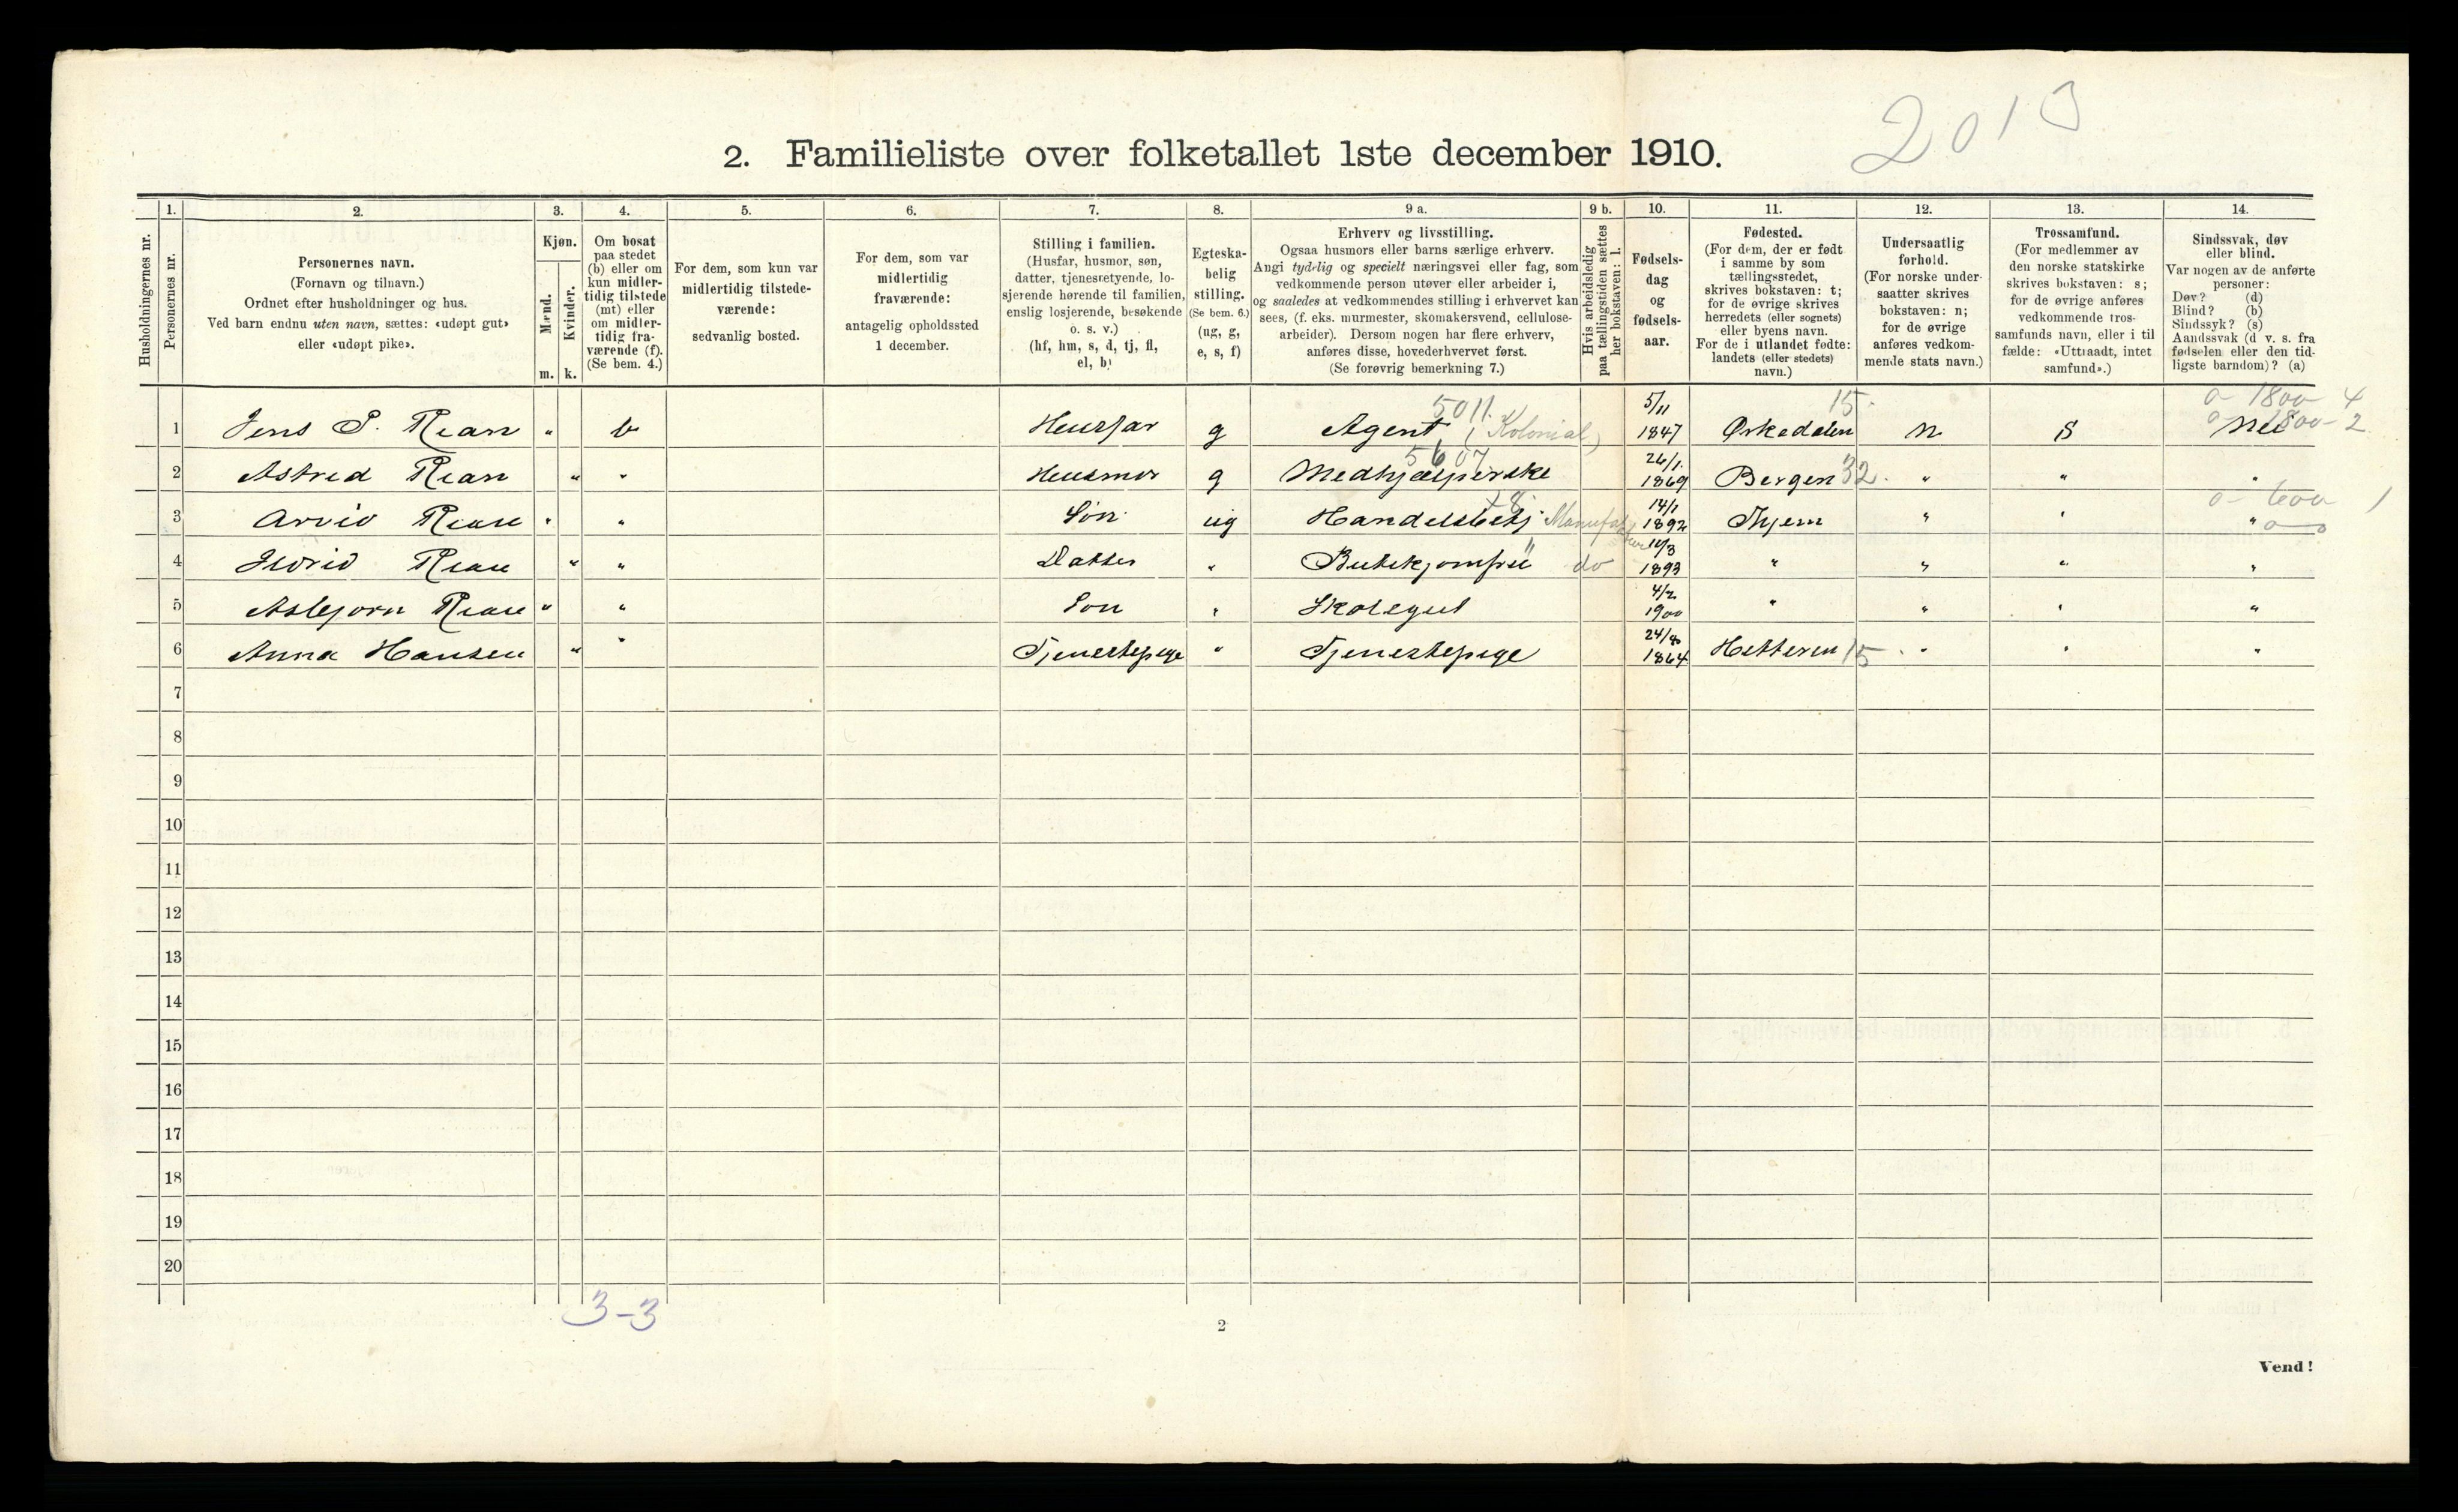 2013
2. Familieliste over folketallet 1ste december 1910.
1. 2. 3. 4. 5. 6. 7. 8. 9 a. 9 b. 10. 11. 12. 13. 14.
Husholdningernes nr.
Personernes nr.
Personernes navn.
(Fornavn og tilnavn.)
Ordnet efter husholdninger og hus.
Ved barn endnu uten navn, sættes: «udøpt gut»
eller «udøpt pike».
Kjøn.
Mænd.
Kvinder.
m. k.
Om bosat
paa stedet
(b) eller om
kun midler-
tidig tilstede
(mt) eller
om midler-
tidig fra-
værende (f).
(Se bem. 4.)
For dem, som kun var
midlertidig tilstede-
værende:
sedvanlig bosted.
For dem, som var
midlertidig
fraværende:
antagelig opholdssted
1 december.
Stilling i familien.
(Husfar, husmor, søn,
datter, tjenestetyende, lo-
sjerende hørende til familien,
enslig losjerende, besøkende
o. s. v.)
(hf, hm, s, d, tj, fl,
el, b)
Egteska-
belig
stilling.
(Se bem. 6.)
(ug, g,
e, s, f)
Erhverv og livsstilling.
Ogsaa husmors eller barns særlige erhverv.
Angi tydelig og specielt næringsvei eller fag, som
vedkommende person utøver eller arbeider i,
og saaledes at vedkommendes stilling i erhvervet kan
sees, (f. eks. murmester, skomakersvend, cellulose-
arbeider). Dersom nogen har flere erhverv,
anføres disse, hovederhvervet først.
(Se forøvrig bemerkning 7.)
Hvis arbeidsledig
paa tællingstiden sættes
her bokstaven: l.
Fødsels-
dag
og
fødsels-
aar.
Fødested.
(For dem, der er født
i samme by som
tællingsstedet,
skrives bokstaven: t;
for de øvrige skrives
herredets (eller sognets)
eller byens navn.
For de i utlandet fødte:
landets (eller stedets)
navn.)
Undersaatlig
forhold.
(For norske under-
saatter skrives
bokstaven: n;
for de øvrige
anføres vedkom-
mende stats navn.)
Trossamfund.
(For medlemmer av
den norske statskirke
skrives bokstaven: s;
for de øvrige anføres
vedkommende tros-
samfunds navn, eller i til
fælde: «Uttraadt, intet
samfund».)
Sindssvak, døv
eller blind.
Var nogen av de anførte
personer:
Døv? (d)
Blind? (b)
Sindssyk? (s)
Aandssvak (d v. s. fra
fødselen eller den tid-
ligste barndom)? (a)
5011. 5/11 15. 0- 1800 4
1 Jens P. Rian " b Husfar g Agent (Kolonial) 1847 Ørkedalen n s Nei 0- 1800-2
5607 26/1
2 Astrid Rian " " Husmor g Medhjælperske 1869 Bergen 32. " " "
78. 14/1 0- 600 1
3 Arvid Rian " " Søn ug Handelsbetj Manufaktur 1892 Hjem " " "
" 14/3
4 " " Datter " Butikjomfru do 1893 " " " "
4/2
5 Asbjørn Rian " " Søn " Skolegut 1900 " " " "
24/8
6 Anna Hansen " " Tjenestepige " Tjenestepige 1864 Hitteren 15 " " "
7
8
9
10
11
12
13
14
15
16
17
18
19
20
3-3
2
Vend!